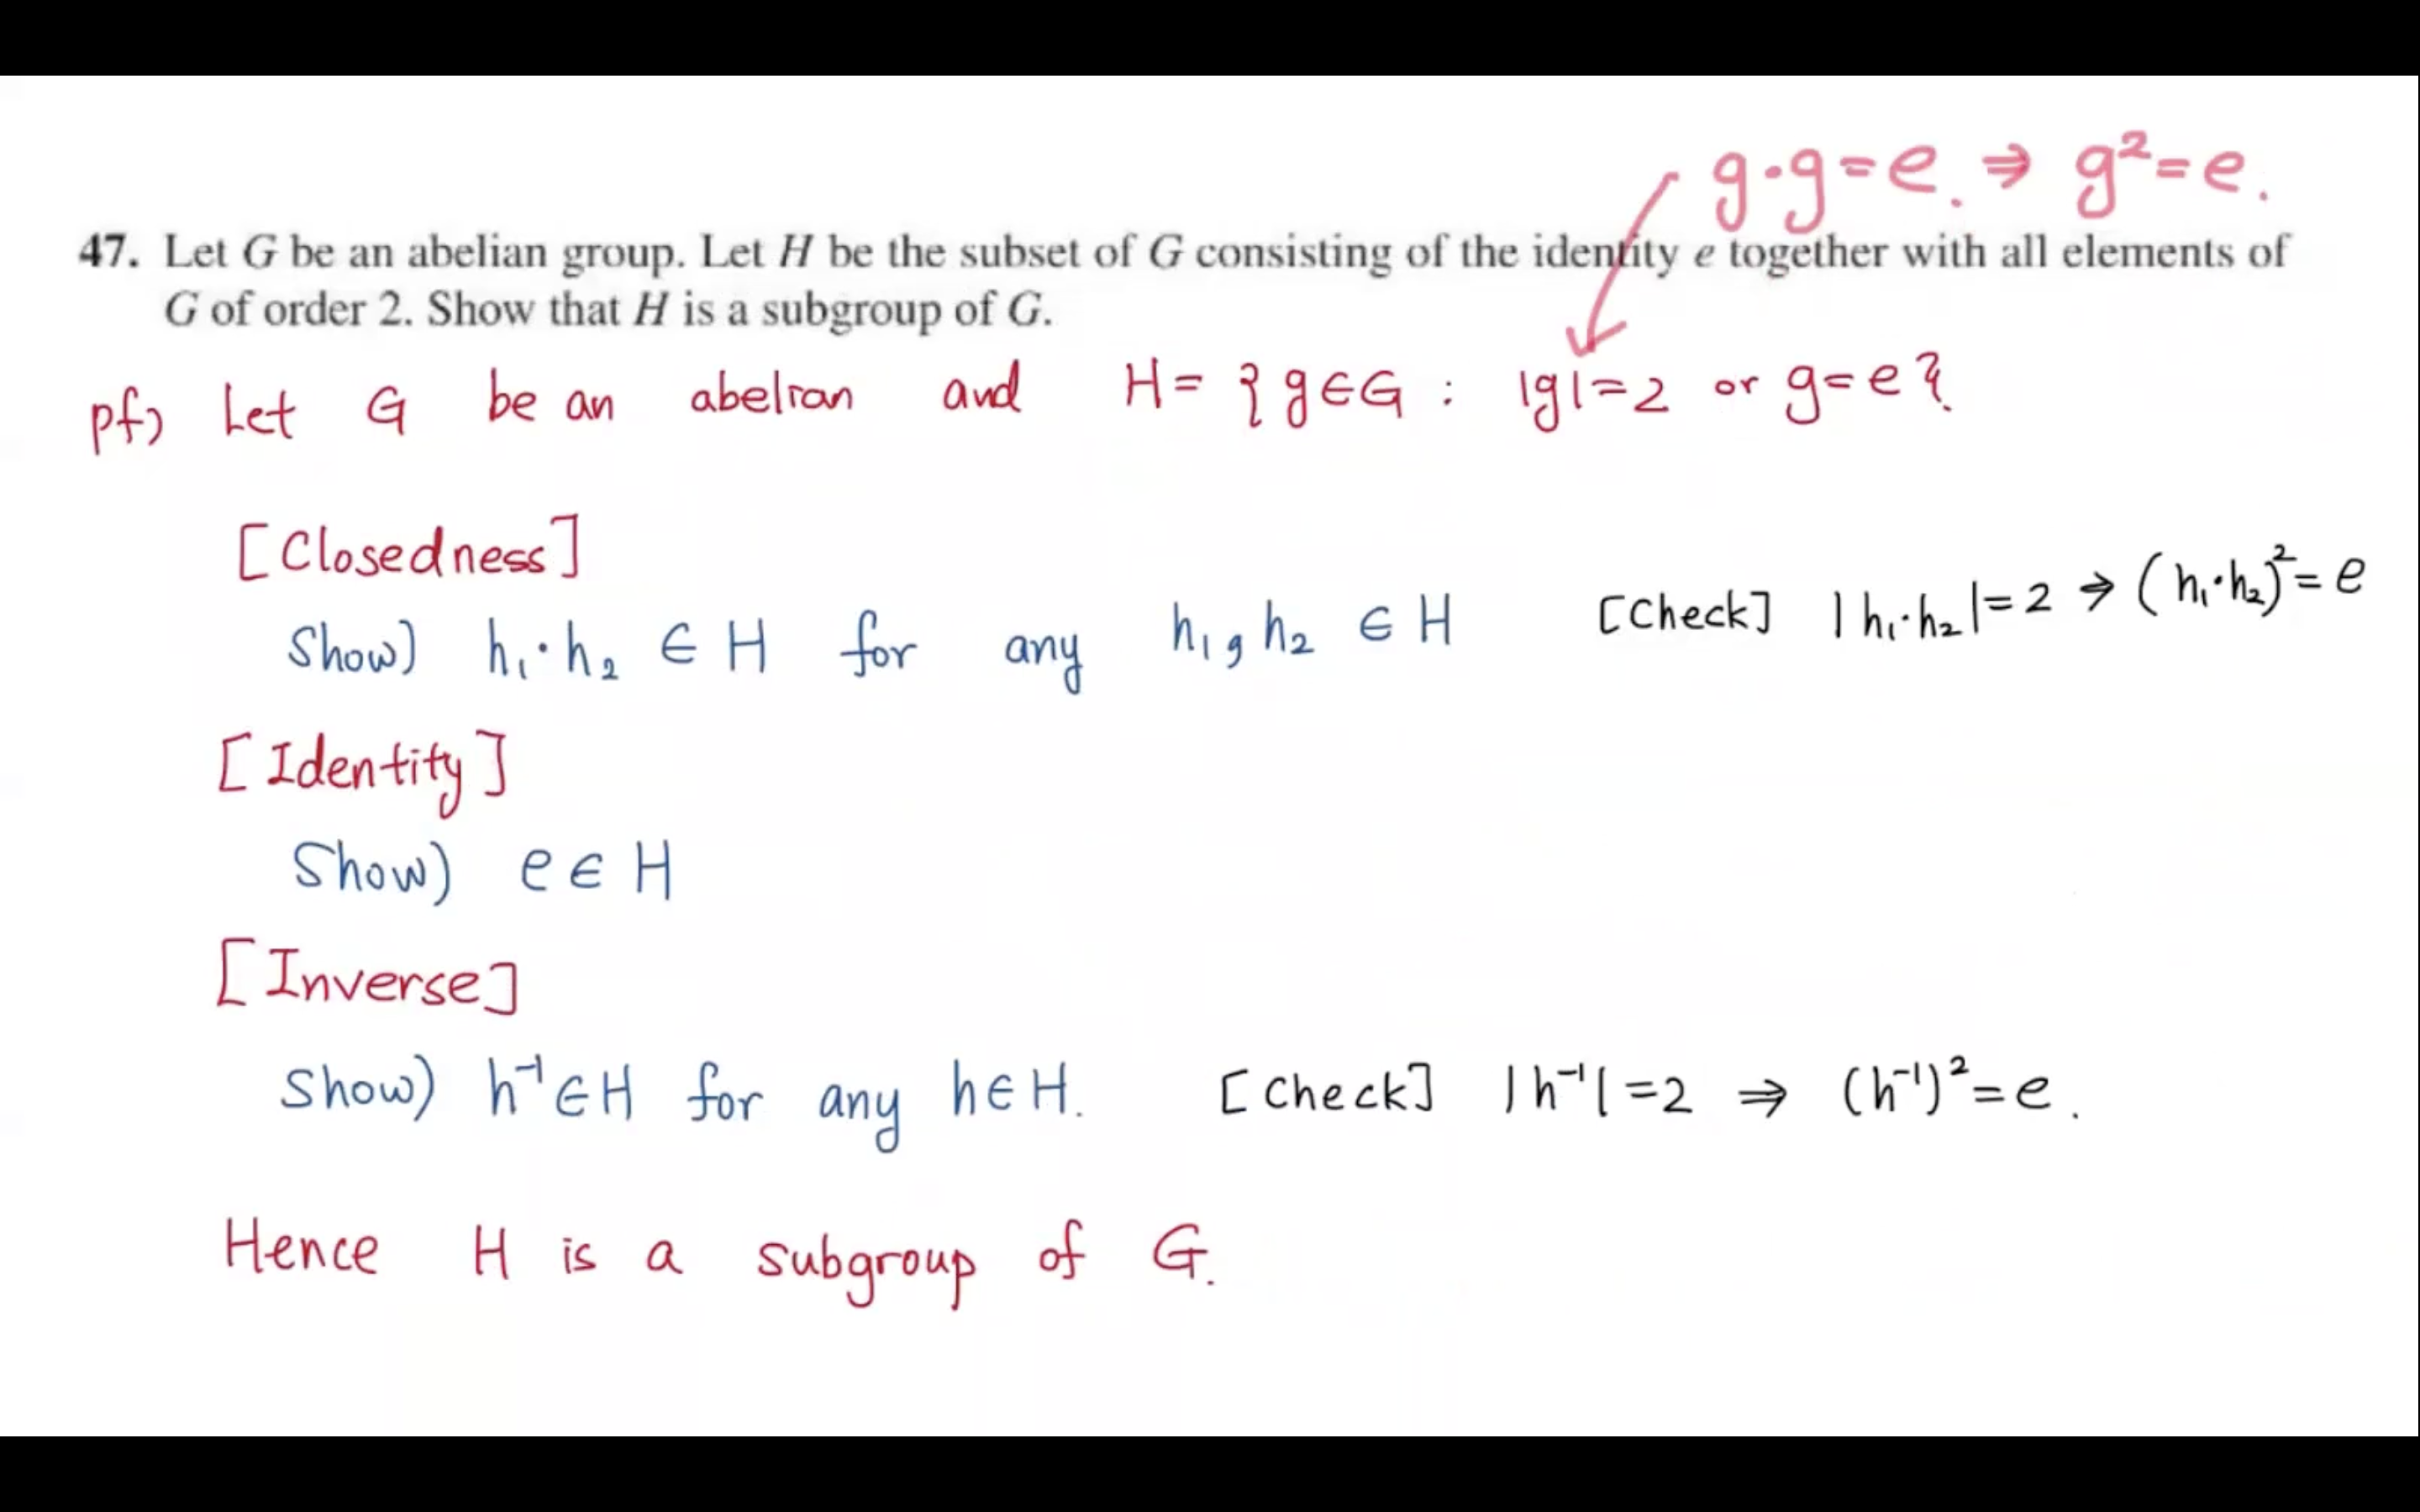 g·g=e. ⇒ g²=e.
47. Let G be an abelian group. Let H be the subset of G consisting of the identity e together with all elements of
G of order 2. Show that H is a subgroup of G.
pf) Let G be an abelian and H = {g∈G : |g|=2 or g=e}.
[Closedness]
Show) h₁·h₂ ∈ H for any h₁, h₂ ∈ H [Check] |h₁·h₂|=2 ⇒ (h₁·h₂)²=e
[Identity]
Show) e∈H
[Inverse]
Show) h⁻¹∈H for any h∈H. [Check] |h⁻¹|=2 ⇒ (h⁻¹)²=e.
Hence H is a subgroup of G.